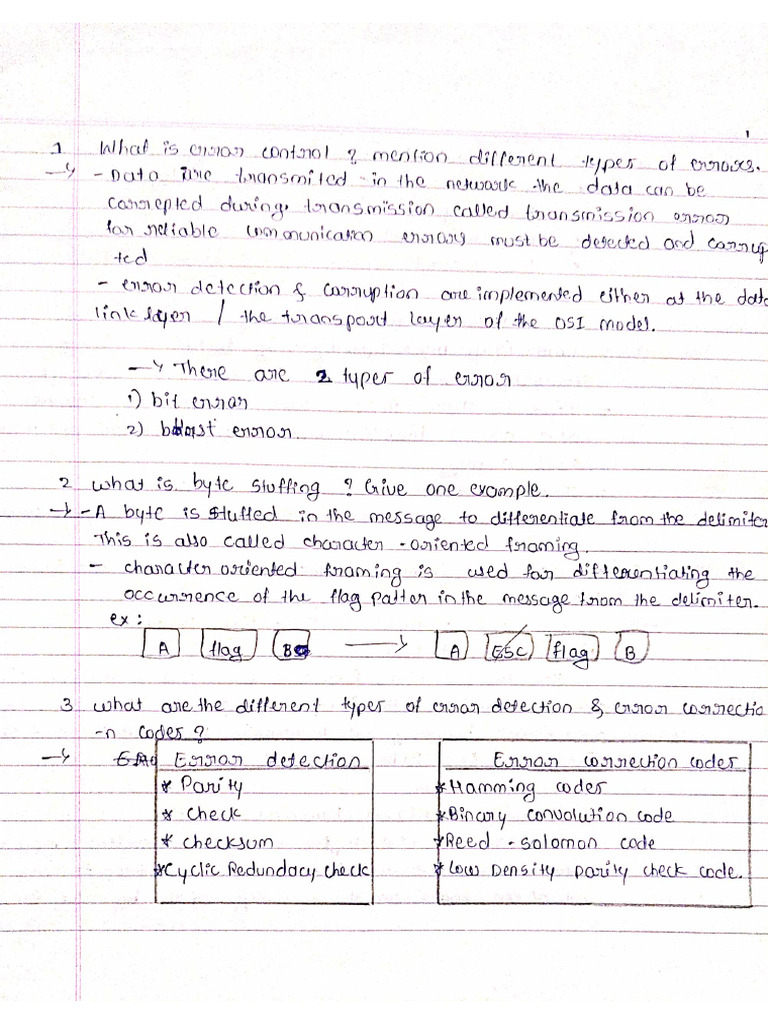 1
1 What is error control ? mention different types of errors.
- Data are transmited in the network the data can be
correpted during. transmission called transmission error
for reliable communication errors must be detected and corrup
ted
- error detection & corruption are implemented either at the data
link layer / the transport layer of the OSI model.
→ There are 2 types of error
1) bit error
2) burst error
2 what is byte stuffing ? Give one example.
→ - A byte is stuffed in the message to differentiate from the delimiter
This is also called character-oriented framing.
- character oriented framing is used for differentiating the
occurrence of the flag patter in the message from the delimiter.
ex :
A flag B → A ESC flag B
3 what are the different types of error detection & error correctio
-n codes ?
→ Error detection Error correction codes
* Parity * Hamming codes
* check * Binary convolution code
* checksum * Reed - solomon code
* Cyclic Redundacy check * Low Density parity check code.